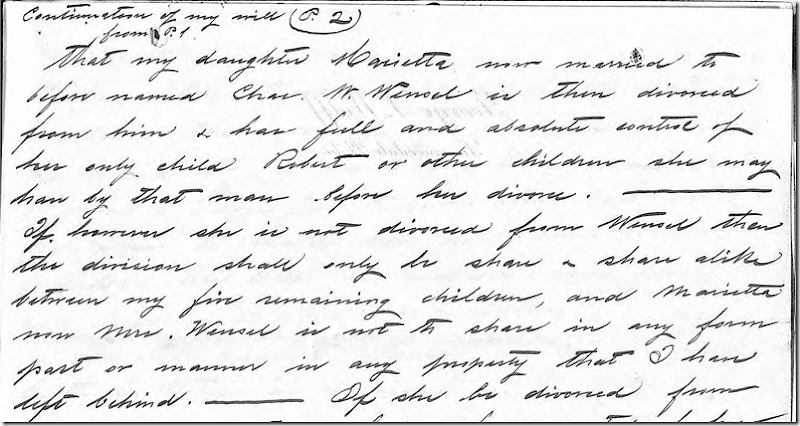 Continuation of my will P. 2
from P. 1
that my daughter Marietta now married to
before named Chas. W. Wensel is then divorced
from him & has full and absolute control of
her only child Robert or other children she may
have by that man before her divorce. ———
If, however she is not divorced from Wensel then
the division shall only be share & share alike
between my five remaining children, and Marietta
now Mrs. Wensel is not to share in any form
part or manner in any property that I have
left behind. ——— If she be divorced from